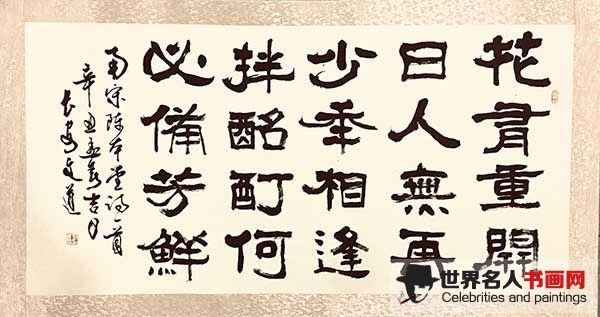 花有重開
日人無再
少年相逢
拌酩酊何
必備芳鮮
南宋陳本堂詩一首
辛丑孟吉月
世界名人书画网
Celebrities and paintings